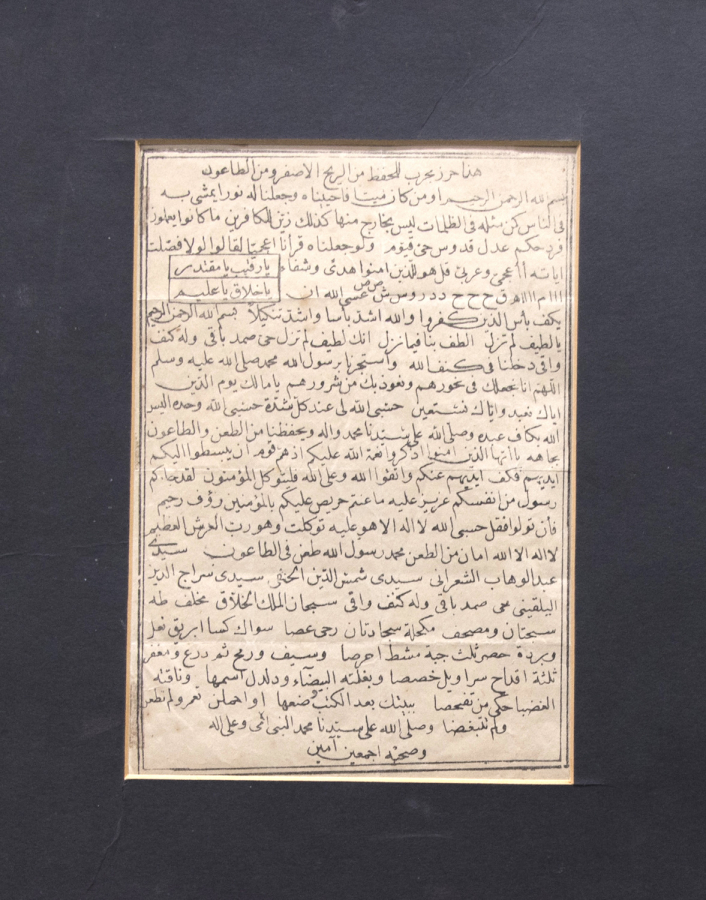 هذا حرز مجرب للحفظ من الريح الاصفر ومن الطاعون
بسم الله الرحمن الرحيم اومن كان ميتا فاحييناه وجعلنا له نورا يمشي به
في الناس كمن مثله في الظلمات ليس بخارج منها كذلك زين للكافرين ما كانوا يعملون
فرد حكم عدل قدوس حي قيوم ولو جعلناه قرآنا اعجميا لقالوا لولا فصلت
اياته أاعجمي وعربي قل هو للذين امنوا هدى وشفاء يا رقيب يا مقتدر
عسى الله ان يا خلاق يا عليم
يكف بأس الذين كفروا والله اشد بأسا واشد تنكيلا بسم الله الرحمن الرحيم
يا لطيف لم تزل الطف بنا فيما نزل انك لطيف لم تزل حي صمد باقي وله كنف
واقي دخلنا في كنف الله واستجرنا برسول الله محمد صلى الله عليه وسلم
اللهم انا نجعلك في نحورهم ونعوذ بك من شرورهم يا مالك يوم الدين
اياك نعبد واياك نستعين حسبي الله لي عند كل شدة حسبي الله وحده اليس
الله بكاف عبده وصلى الله على سيدنا محمد واله ويحفظنا من الطعن والطاعون
بجاهه يا ايها الذين امنوا اذكروا نعمة الله عليكم اذ هم قوم ان يبسطوا اليكم
ايديهم فكف ايديهم عنكم واتقوا الله وعلى الله فليتوكل المؤمنون لقد جاءكم
رسول من انفسكم عزيز عليه ما عنتم حريص عليكم بالمؤمنين رؤف رحيم
فان تولوا فقل حسبي الله لا اله الا هو عليه توكلت وهو رب العرش العظيم
لا اله الا الله امان من الطعن محمد رسول الله طعن في الطاعون سيدي
عبد الوهاب الشعراني سيدي شمس الدين الحنفي سيدي سراج الدين
البلقيني حي صمد باقي وله كنف واقي سبحان الملك الخلاق مخلف طه
سبحتان ومصحف مكحلة سجادتان رحى عصا سواك كسا ابريق نعل
وبردة حصر ثلث جبة مشط احرصا وسيف ورمح ثم درع ومغفر
ثلثة اقداح سراويل خصصا وبغلته البيضاء ودلدل اسمها وناقته
العضبا حكى من تفحصا ببيتك بعد الكتب ضعها او احملن
ولم تلق بغضا وصلى الله على سيدنا محمد النبي الامي وعلى اله
وصحبه اجمعين آمين